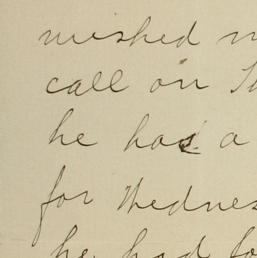 wished
call on
he has a
for Wednes
he had fo